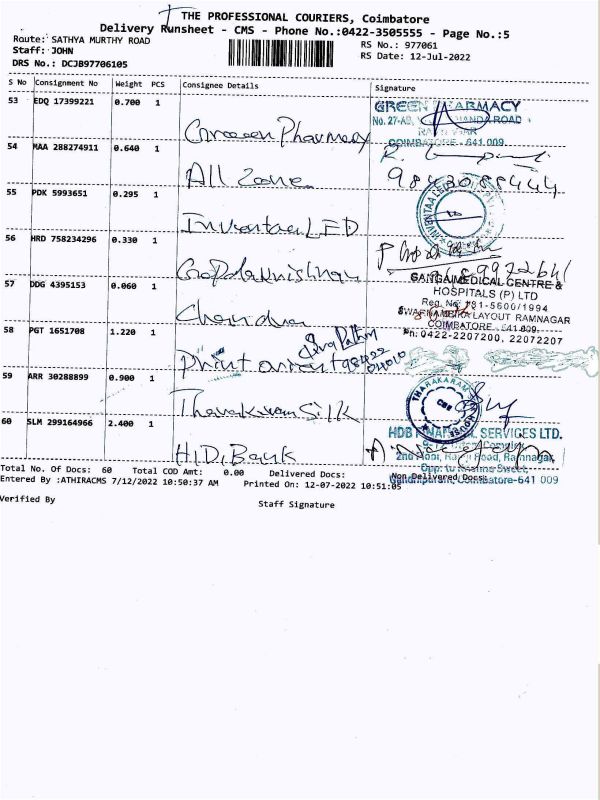 THE PROFESSIONAL COURIERS, Coimbatore
Delivery Runsheet - CMS - Phone No.:0422-3505555 - Page No.:5
Route: SATHYA MURTHY ROAD
RS No.: 977061
Staff: JOHN
RS Date: 12-Jul-2022
DRS No.: DCJB97706105
S No Consignment No Weight PCS Consignee Details Signature
53 EDQ 17399221 0.700 1
GREEN PHARMACY
No. 27-A
ROAD
COIMBATORE - 641 009.
Greeen Pharmacy
54 MAA 288274911 0.640 1
R.
All Zone
55 PDK 5993651 0.295 1
Inventaa LED
56 HRD 758234296 0.330 1
Gopalakrishnan
GANGA MEDICAL CENTRE &
HOSPITALS (P) LTD
57 DDG 4395153 0.060 1
Reg. No. 781-5600/1994
SWARNAMBIKA LAYOUT RAMNAGAR
Chandra
COIMBATORE - 641 009.
Pn: 0422-2207200, 22072207
58 PGT 1651708 1.220 1
Print orient
59 ARR 30288899 0.900 1
THARAKARAM
Tharakaram Silk
60 SLM 299164966 2.400 1
HDB FINANCIAL SERVICES LTD.
2nd Floor, Rajaji Road, Ramnagar,
H.D. Bank
Opp. to Krishna Sweet,
Gandhipuram, Coimbatore-641 009
Total No. Of Docs: 60 Total COD Amt: 0.00 Delivered Docs: Non-Delivered Docs:
Entered By :ATHIRACMS 7/12/2022 10:50:37 AM Printed On: 12-07-2022 10:51:05
Verified By
Staff Signature